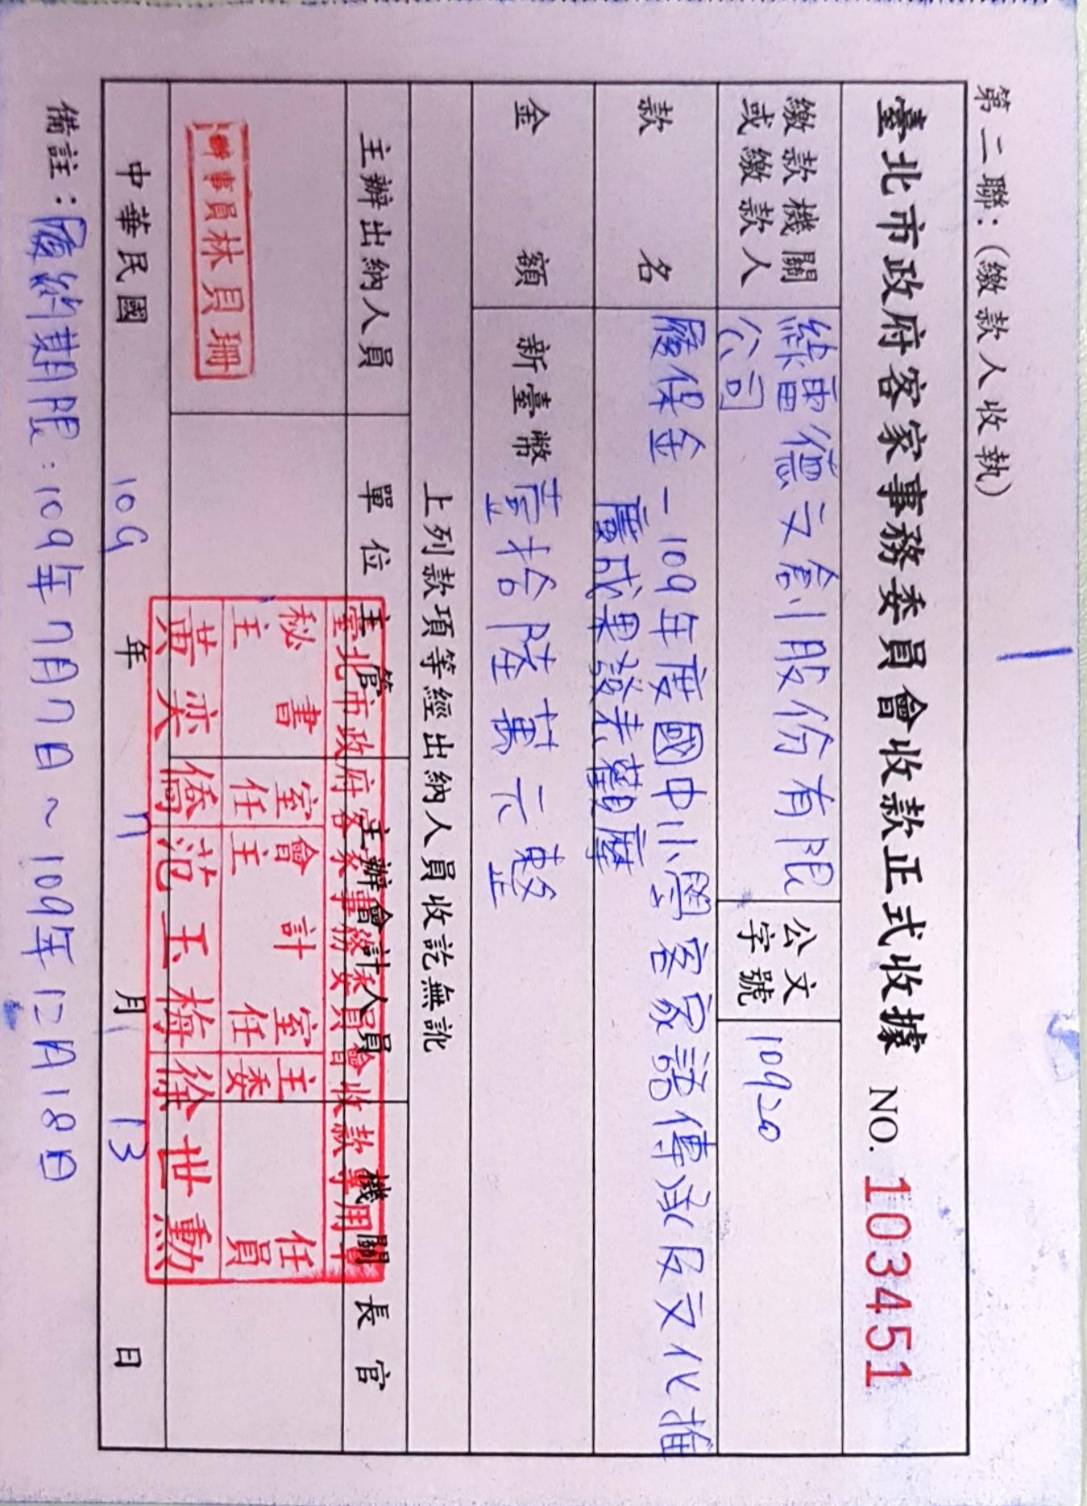 第二聯：(繳款人收執)
臺北市政府客家事務委員會收款正式收據 NO. 103451
繳款機關
或繳款人
綠雷德文創股份有限
公司
公文
字號
10920
款名
履保金-109年度國中小學客家語傳承及文化推
廣成果發表觀摩
金額
新臺幣壹拾陸萬元整
上列款項等經出納人員收訖無訛
主辦出納人員
單位主管
主辦會計人員
機關長官
辦事員林貝珊
臺北市政府客家事務委員會收款專用章
秘書室主任
黃奕僑
會計室主任
范玉梅
主任委員
徐世勳
中華民國109年7月13日
備註：履約期限：109年7月7日~109年12月18日